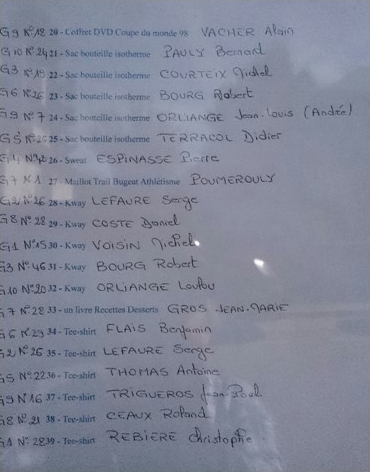 G9 N°12 20 - Coffret DVD Coupe du monde 98 VACHER Alain
G10 N°24 21 - Sac bouteille isotherme PAULY Bernard
G3 N°19 22 - Sac bouteille isotherme COURTEIX Michel
G6 N°26 23 - Sac bouteille isotherme BOURG Robert
G9 N°7 24 - Sac bouteille isotherme ORLIANGE Jean-Louis (André)
G5 25 - Sac bouteille isotherme TERRACOL Didier
26 - Sweat ESPINASSE Pierre
G7 N°1 27 - Maillot Trail Bugeat Athlétisme POUMEROULY
G2 N°26 28 - Kway LEFAURE Serge
G8 N°28 29 - Kway COSTE Daniel
G1 N°15 30 - Kway VOISIN Michel
G3 N°46 31 - Kway BOURG Robert
G10 N°20 32 - Kway ORLIANGE Loulou
G7 N°28 33 - un livre Recettes Desserts GROS JEAN-MARIE
G6 N°29 34 - Tee-shirt FLAIS Benjamin
G2 N°26 35 - Tee-shirt LEFAURE Serge
G5 N°22 36 - Tee-shirt THOMAS Antoine
G9 N°16 37 - Tee-shirt TRIGUEROS Jean-Paul
G8 N°21 38 - Tee-shirt CEAUX Roland
G1 N°28 39 - Tee-shirt REBIERE Christophe